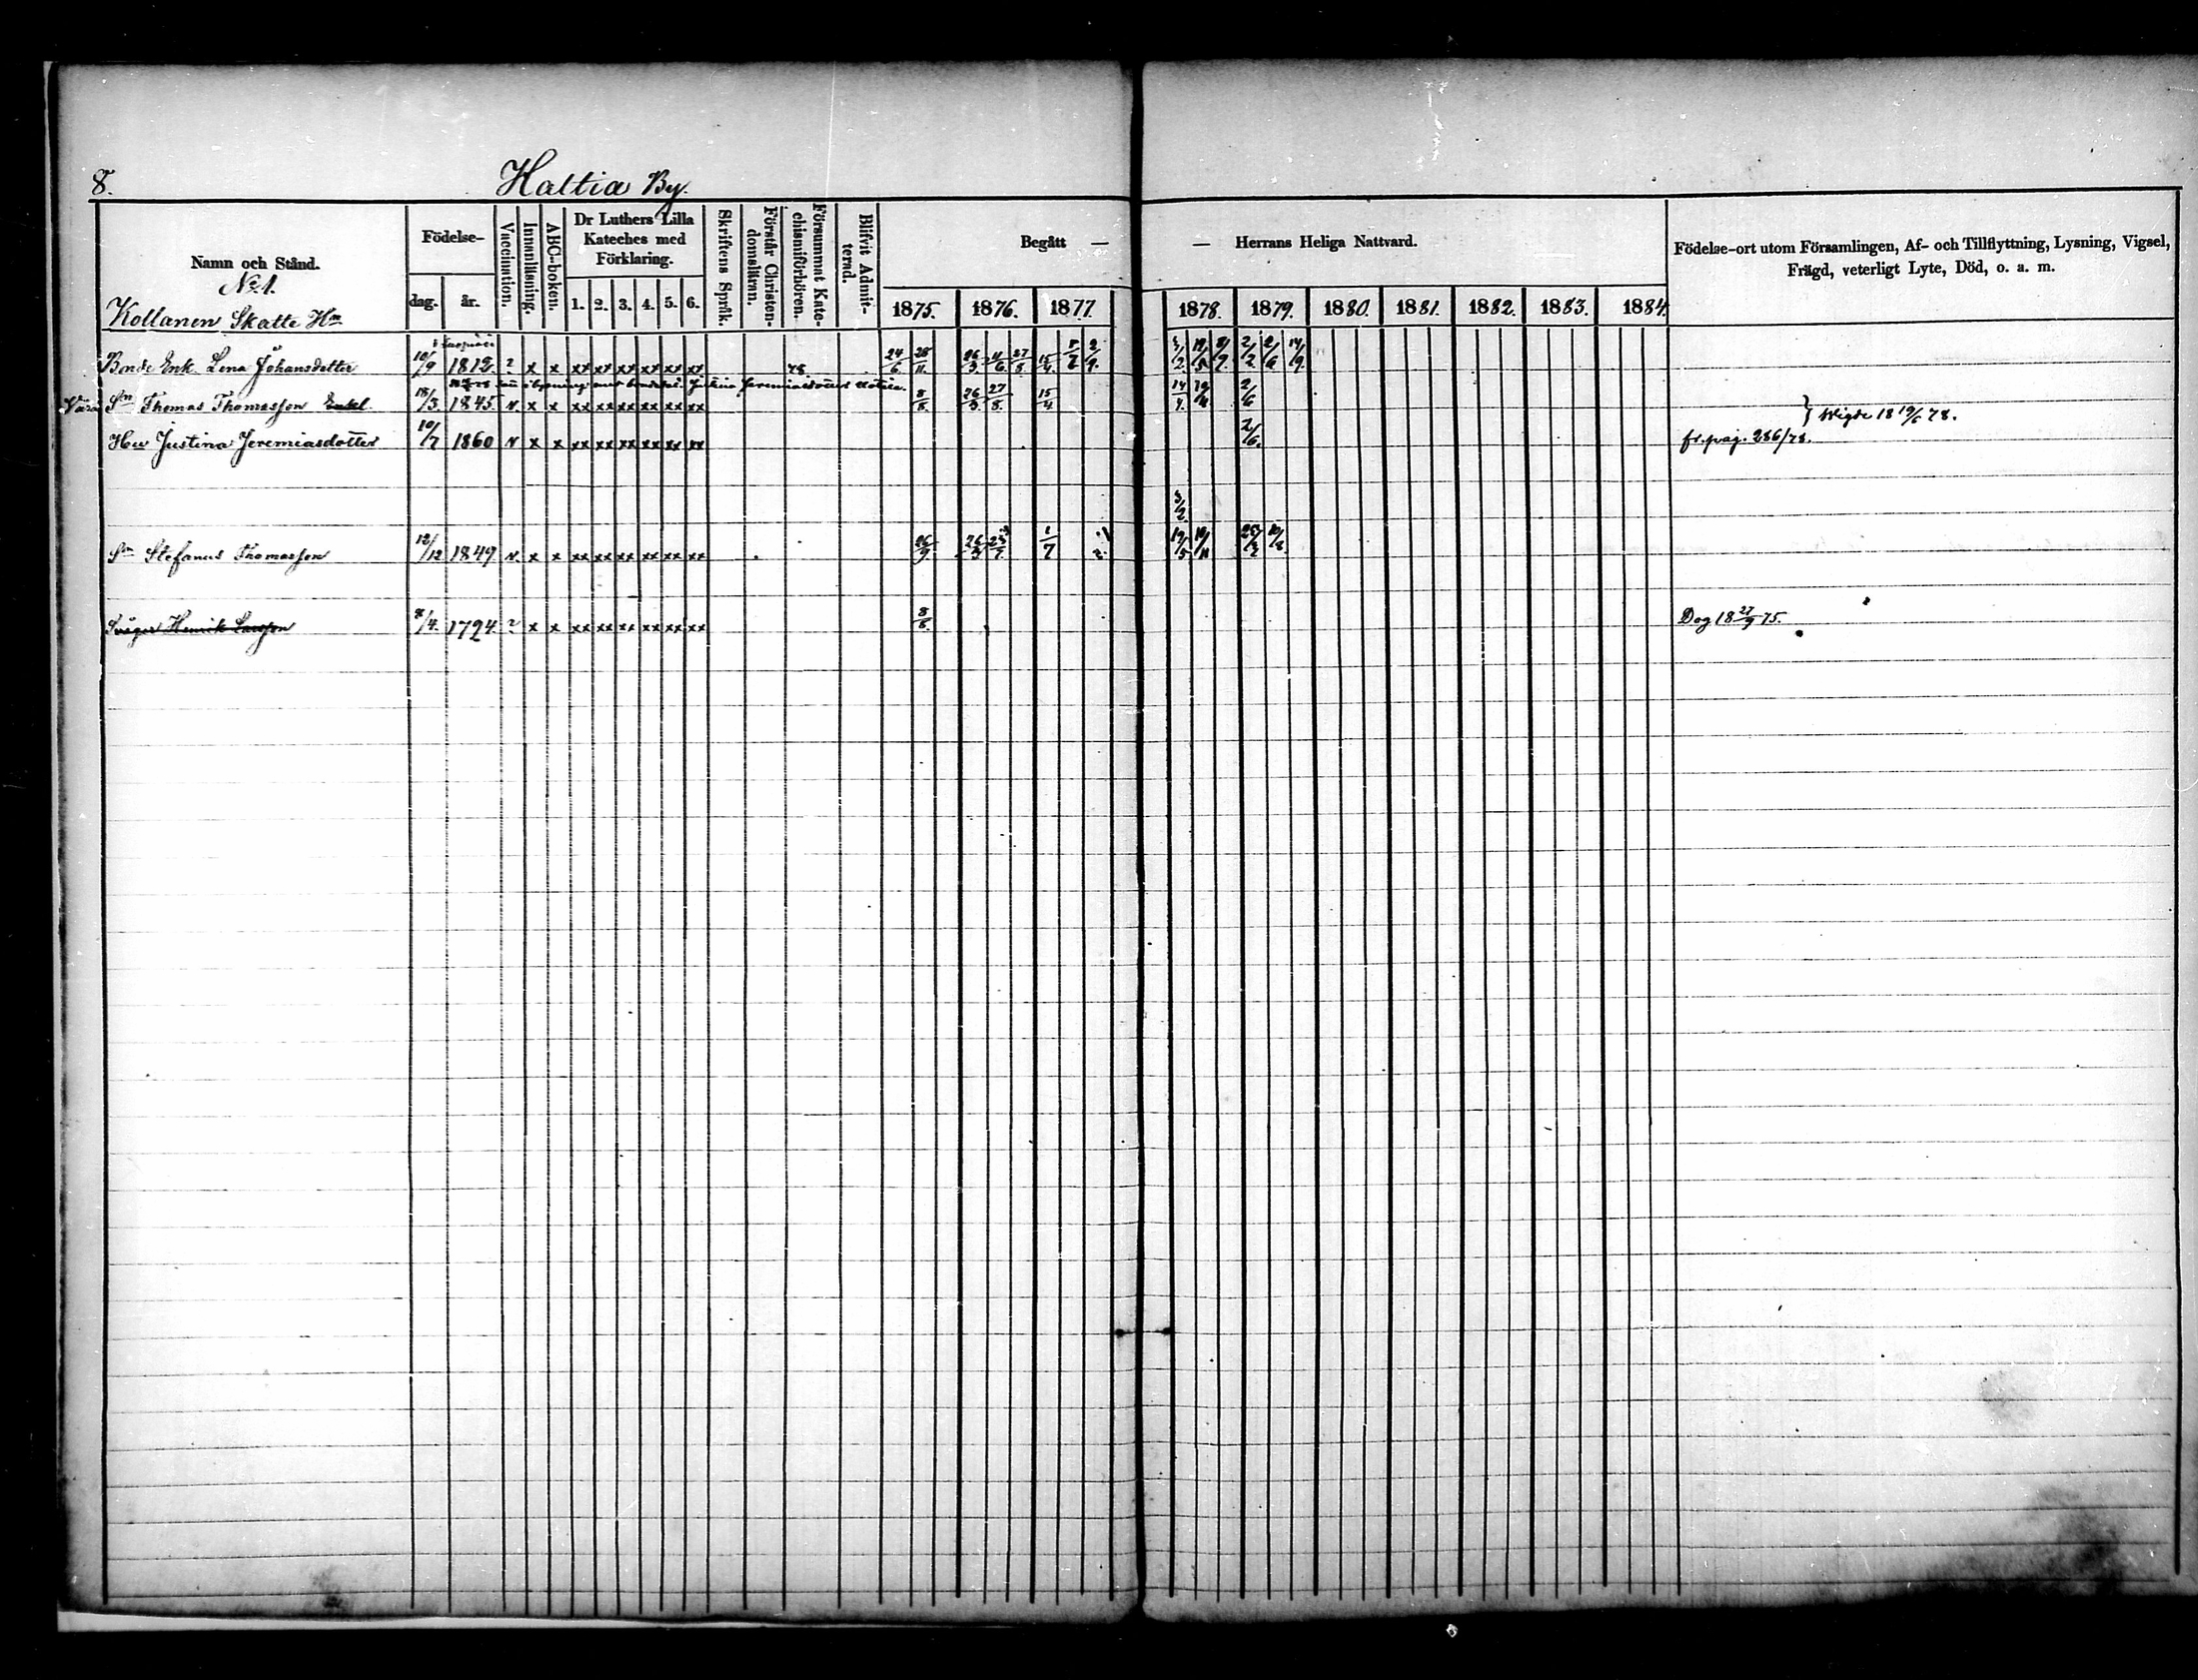 8. Haltia By.
Namn och Stånd. Födelse- dag. år. Vaccination. Innanläsning. ABC-boken. Dr Luthers Lilla Kateches med Förklaring. 1. 2. 3. 4. 5. 6. Skriftens Språk. Förstår Christendomsläran. Försummat Katechismiförhören. Blifvit Admitterad. Begått — — Herrans Heliga Nattvard. Födelse-ort utom Församlingen, Af- och Tillflyttning, Lysning, Vigsel, Frägd, veterligt Lyte, Död, o. a. m.
1875. 1876. 1877. 1878. 1879. 1880. 1881. 1882. 1883. 1884.
No 1.
Kollanen Skatte Hm
Bonde Enk. Lena Johansdotter 10/9 1812. ? x x xx xx xx xx xx xx 78 24/6 28/11 26/3 4/6 27/8 15/4
Sn Thomas Thomasson Enkl. 18/3 1845 v x x xx xx xx xx xx xx 8/8 26/3 27/8 15/4 2/6 } Wigde 18 19/6 78.
Hu Justina Jeremiasdotter 10/7 1860 v x x xx xx xx xx xx xx 2/6. fr. pag. 286/78.
3/2
Sn Stefanus Thomasson 12/12 1849 v x x xx xx xx xx xx xx 26/9 26/3 1/7
Svåger Henrik Larsson 1794. ? x x xx xx xx xx xx xx 8/8 Dog 18 27/9 75.